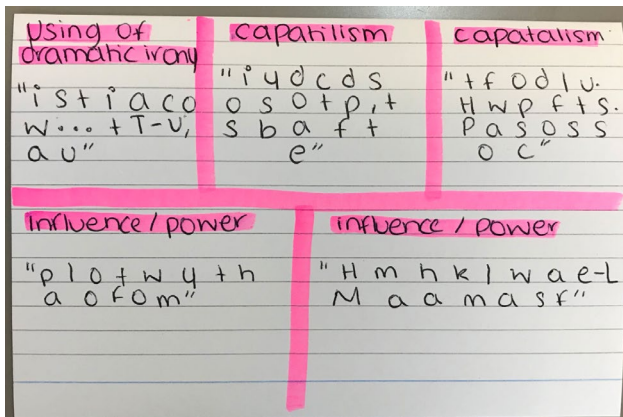 Using of
dramatic irony
"i s t i a c o
w... t T-U,
a u"
capatilism
"i y d c d s
o s o t p, t
s b a f t
e"
capatalism
"t f o d l u.
H w p f t s.
P a s o s s
o c"
influence / power
"p l o t w y t h
a o f o m"
influence / power
"H m h k l w a e-L
M a a m a s f"